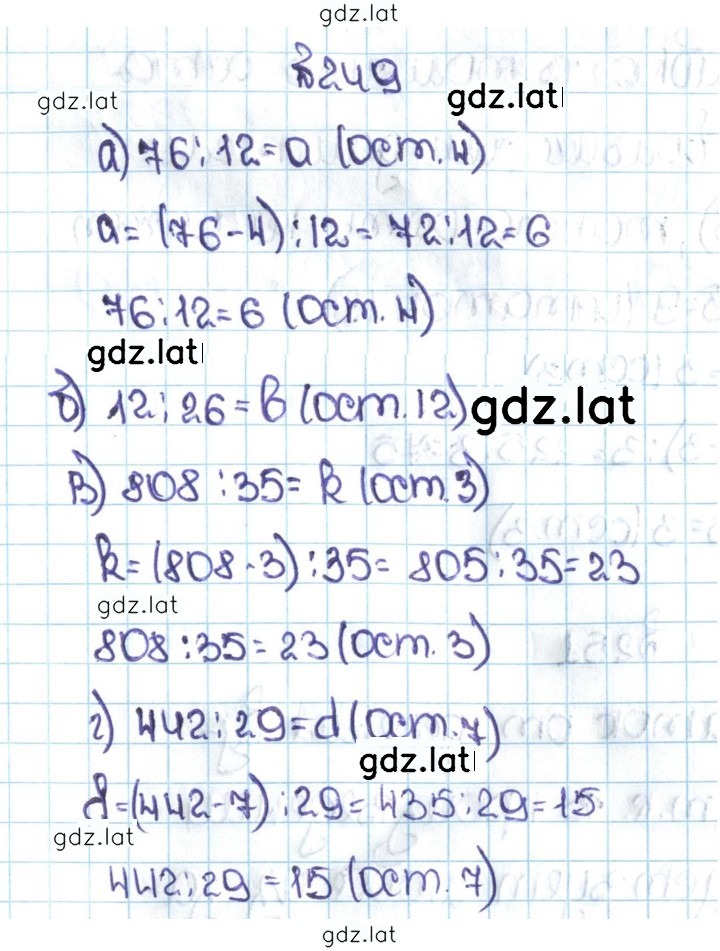 gdz.lat
№249
gdz.lat gdz.lat
а) 76:12=а (ост. 4)
а= (76-4):12= 72:12=6
76:12=6 (ост. 4)
gdz.lat
б) 12:26=в (ост. 12) gdz.lat
в) 808:35= k (ост. 3)
k=(808-3):35= 805:35=23
gdz.lat
808:35=23 (ост. 3)
г) 442:29=d (ост. 7)
gdz.lat
d=(442-7):29=435:29=15
gdz.lat
442:29=15 (ост. 7)
gdz.lat